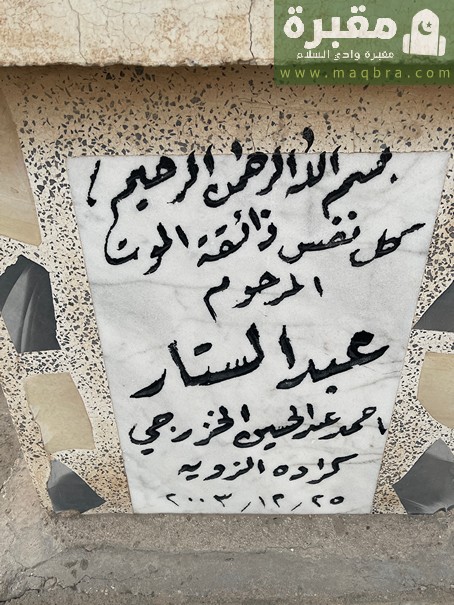 مقبرة
مقبرة وادي السلام
www.maqbra.com
بسم الله الرحمن الرحيم
كل نفس ذائقة الموت
المرحوم
عبد الستار
احمد عبد الحسين الخزرجي
كراده الزويه
٢٠٠٣/١٢/٢٥